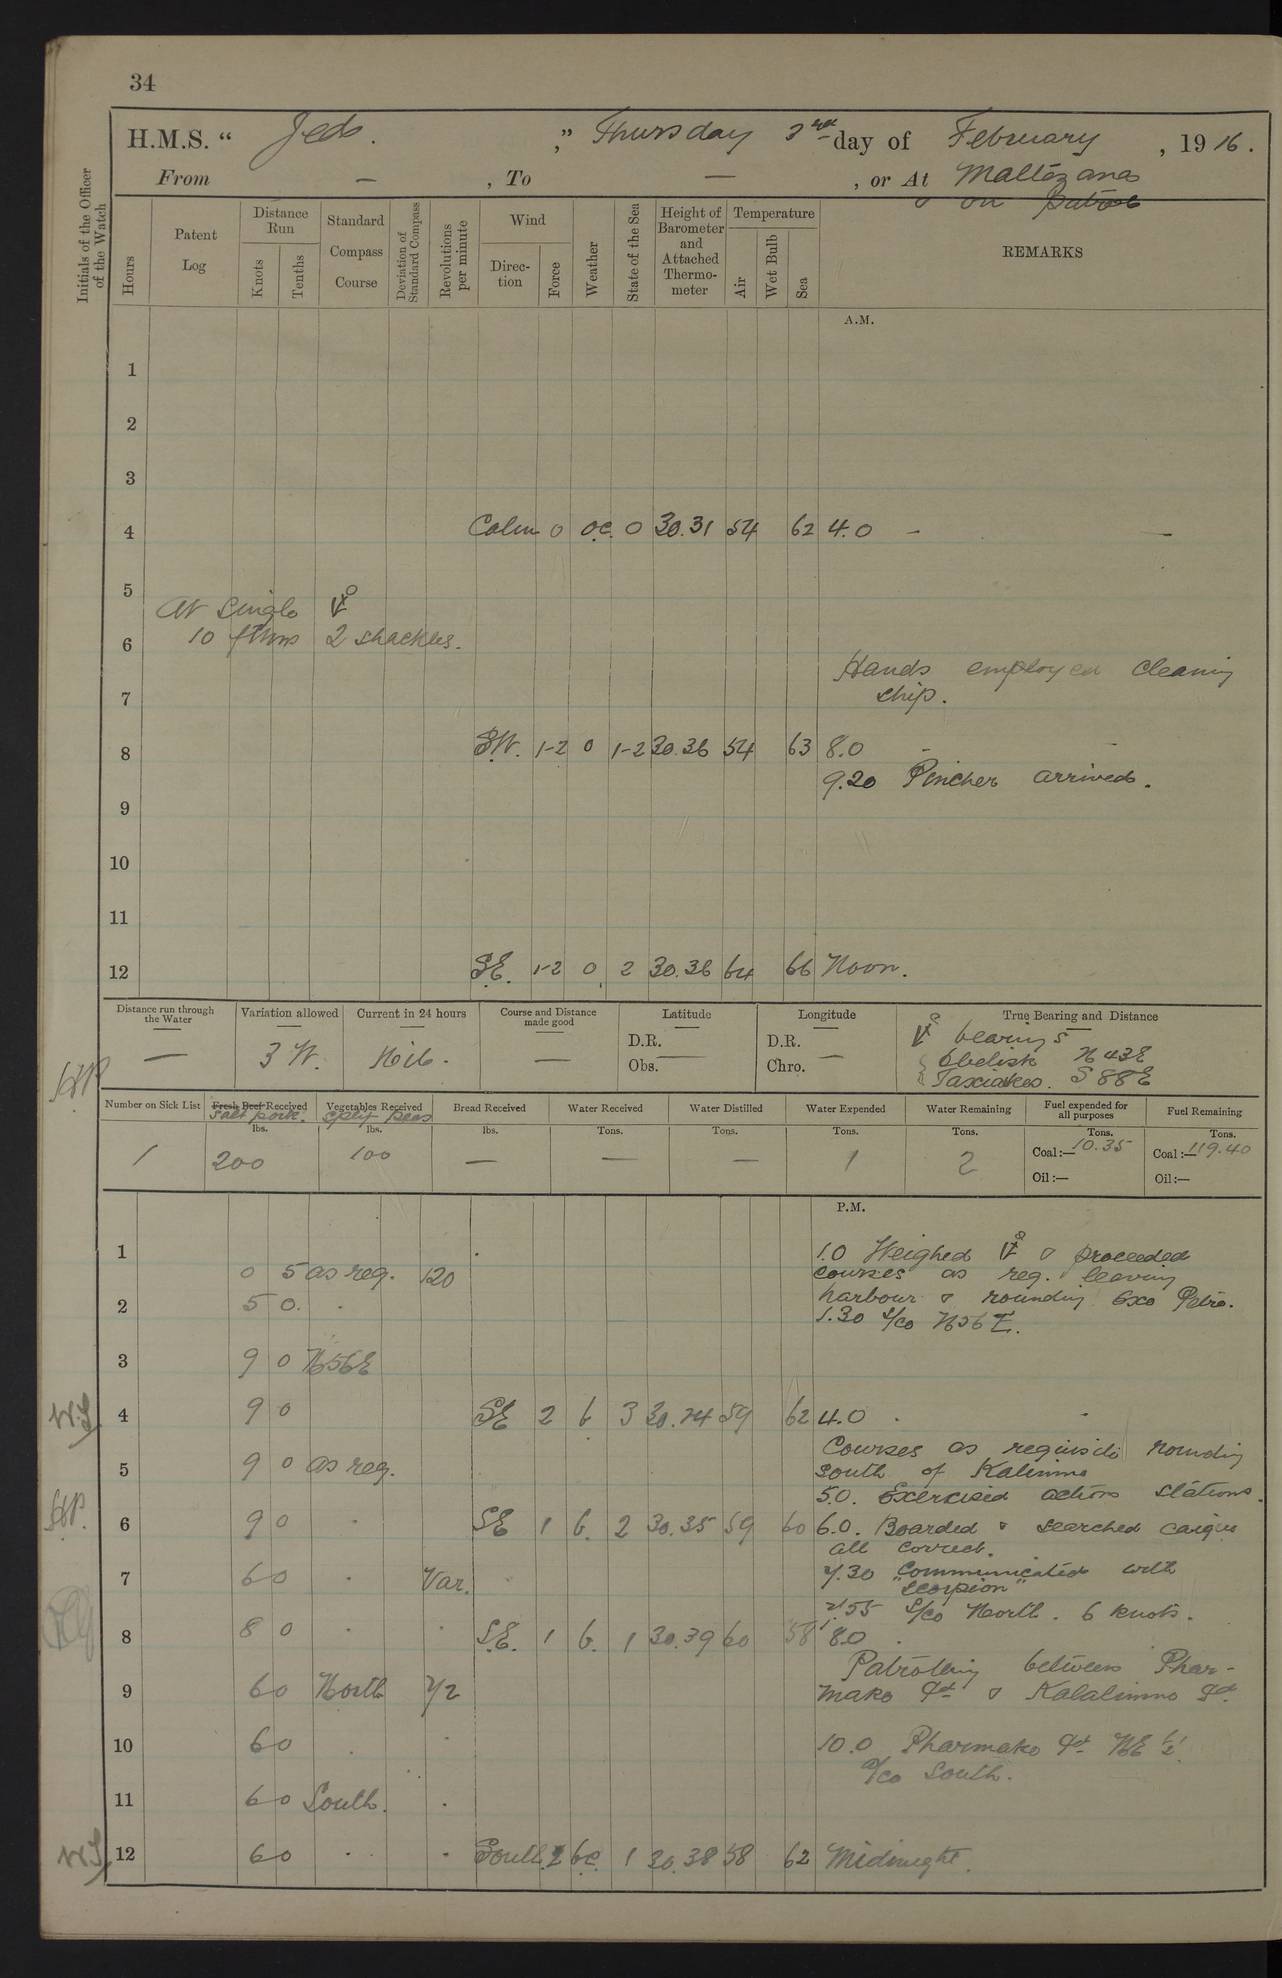 34
H.M.S. " Jed. ," Thursday 3rd day of February , 1916.
From — , To — , or At Maltezana
& on Patrol
Initials of the Officer of the Watch
Hours
Patent Log
Distance Run
Knots
Tenths
Standard Compass Course
Deviation of Standard Compass
Revolutions per minute
Wind
Direction
Force
Weather
State of the Sea
Height of Barometer and Attached Thermometer
Temperature
Air
Wet Bulb
Sea
REMARKS
A.M.
1
2
3
4 Calm 0 o.c. 0 30.31 54 62 4.0 — —
5
At single
6 10 fthms 2 shackles.
Hands employed cleaning
7 ship.
8 S.W. 1-2 o 1-2 30.36 54 63 8.0 - -
9.20 Pincher arrived.
9
10
11
12 S.E. 1-2 o 2 30.36 64 66 Noon.
Distance run through the Water —
Variation allowed 3 W.
Current in 24 hours Nil.
Course and Distance made good —
Latitude D.R. — Obs.
Longitude D.R. — Chro.
True Bearing and Distance
bearings
Obelisk N 43 E
S 88 E
Number on Sick List 1
Fresh Beef Received Salt pork. lbs. 200
Vegetables Received Split Peas lbs. 100
Bread Received lbs. —
Water Received Tons. —
Water Distilled Tons. —
Water Expended Tons. 1
Water Remaining Tons. 2
Fuel expended for all purposes Tons. Coal:— 10.35 Oil:—
Fuel Remaining Tons. Coal:— 119.40 Oil:—
P.M.
1 1.0 Weighed & proceeded
0 5 as req. 120 courses as req. leaving
2 5 0 . harbour & rounding Exo Petra.
1.30 a/co N56E.
3 9 0 N56E
4 9 0 SE 2 b 3 30.34 59 62 4.0 . .
Courses as requisite rounding
5 9 0 as req. south of Kalimno
5.0. Exercised action stations.
6 9 0 . SE 1 b. 2 30.35 59 60 6.0. Boarded & searched caique
all correct.
7 6 0 . Var. 7.30 Communicated with
"Scorpion"
7.55 a/co North. 6 knots.
8 8 0 . . S.E. 1 b. 1 30.39 60 58 8.0 .
Patrolling between Phar-
9 6 0 North 72 mako Id & Kalalimno Id.
10 6 0 . . 10.0 Pharmako Id NE ½'
a/co South.
11 6 0 South. .
12 6 0 . . South. 2 bc. 1 30.38 58 62 Midnight.